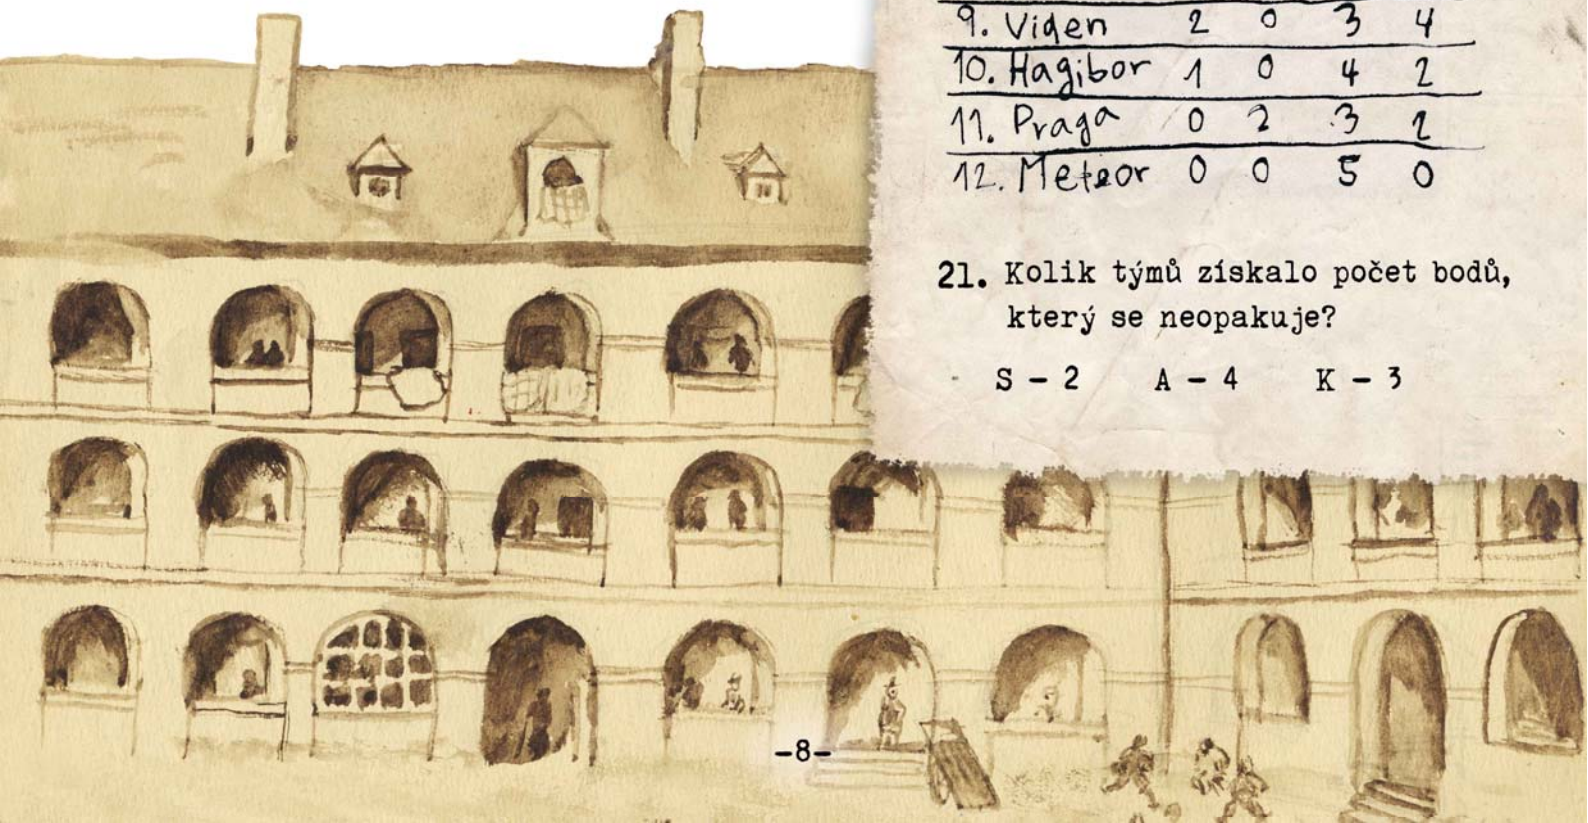 9. Viden 2 0 3 4
10. Hagibor 1 0 4 2
11. Praga 0 2 3 2
12. Meteor 0 0 5 0
21. Kolik týmů získalo počet bodů,
který se neopakuje?
S – 2 A – 4 K – 3
–8–